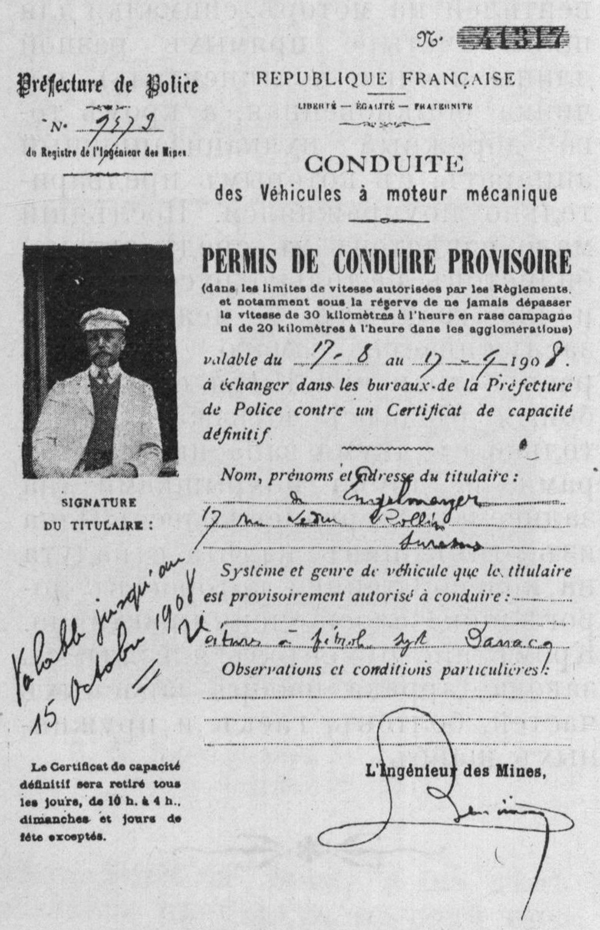 N° 41317
Préfecture de Police
N° 9573
du Registre de l'Ingénieur des Mines
REPUBLIQUE FRANÇAISE
LIBERTÉ — ÉGALITÉ — FRATERNITÉ
CONDUITE
des Véhicules à moteur mécanique
PERMIS DE CONDUIRE PROVISOIRE
(dans les limites de vitesse autorisées par les Règlements,
et notamment sous la réserve de ne jamais dépasser
la vitesse de 30 kilomètres à l'heure en rase campagne
ni de 20 kilomètres à l'heure dans les agglomérations)
valable du 17-8 au 17-9 1908.
à échanger dans les bureaux de la Préfecture
de Police contre un Certificat de capacité
définitif
Nom, prénoms et adresse du titulaire :
de Engelmeyer
17 rue Ledru Rollin
Suresnes
Système et genre de véhicule que le titulaire
est provisoirement autorisé à conduire :
Voiture à pétrole syst Darracq
Observations et conditions particulières :
L'Ingénieur des Mines,
SIGNATURE
DU TITULAIRE :
Valable jusqu'au
15 Octobre 1908
Le Certificat de capacité
définitif sera retiré tous
les jours, de 10 h. à 4 h.,
dimanches et jours de
fête exceptés.